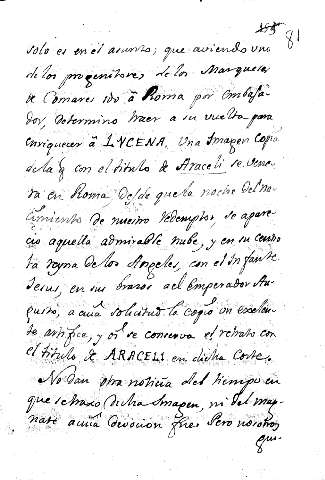 81
solo es en el asunto; que aviendo uno
de los progenitores de los Marqueses
de Comares ido â Roma por Embaja-
dor, determino traer a su vuelta para
enriquecer â LVCENA. Una Imagen copia
de la q̃ con el titulo de Araceli se vene-
ra en Roma desde que la noche del na-
cimiento de nuestro redemptor, se apare-
cio aquella admirable nube, y en su centro
la reyna de los Angeles, con el Infante
Jesus, en sus brazos a el emperador Au-
gusto, a cuia solicitud la copió un excelen-
te artifice, y oỹ se conserva el retrato con
el titulo de ARACELI en dicha Corte.
No dan otra noticia del tiempo en
que se traxo dicha Imagen, ni del mag-
nate a cuia devocion fue: Pero nosotros